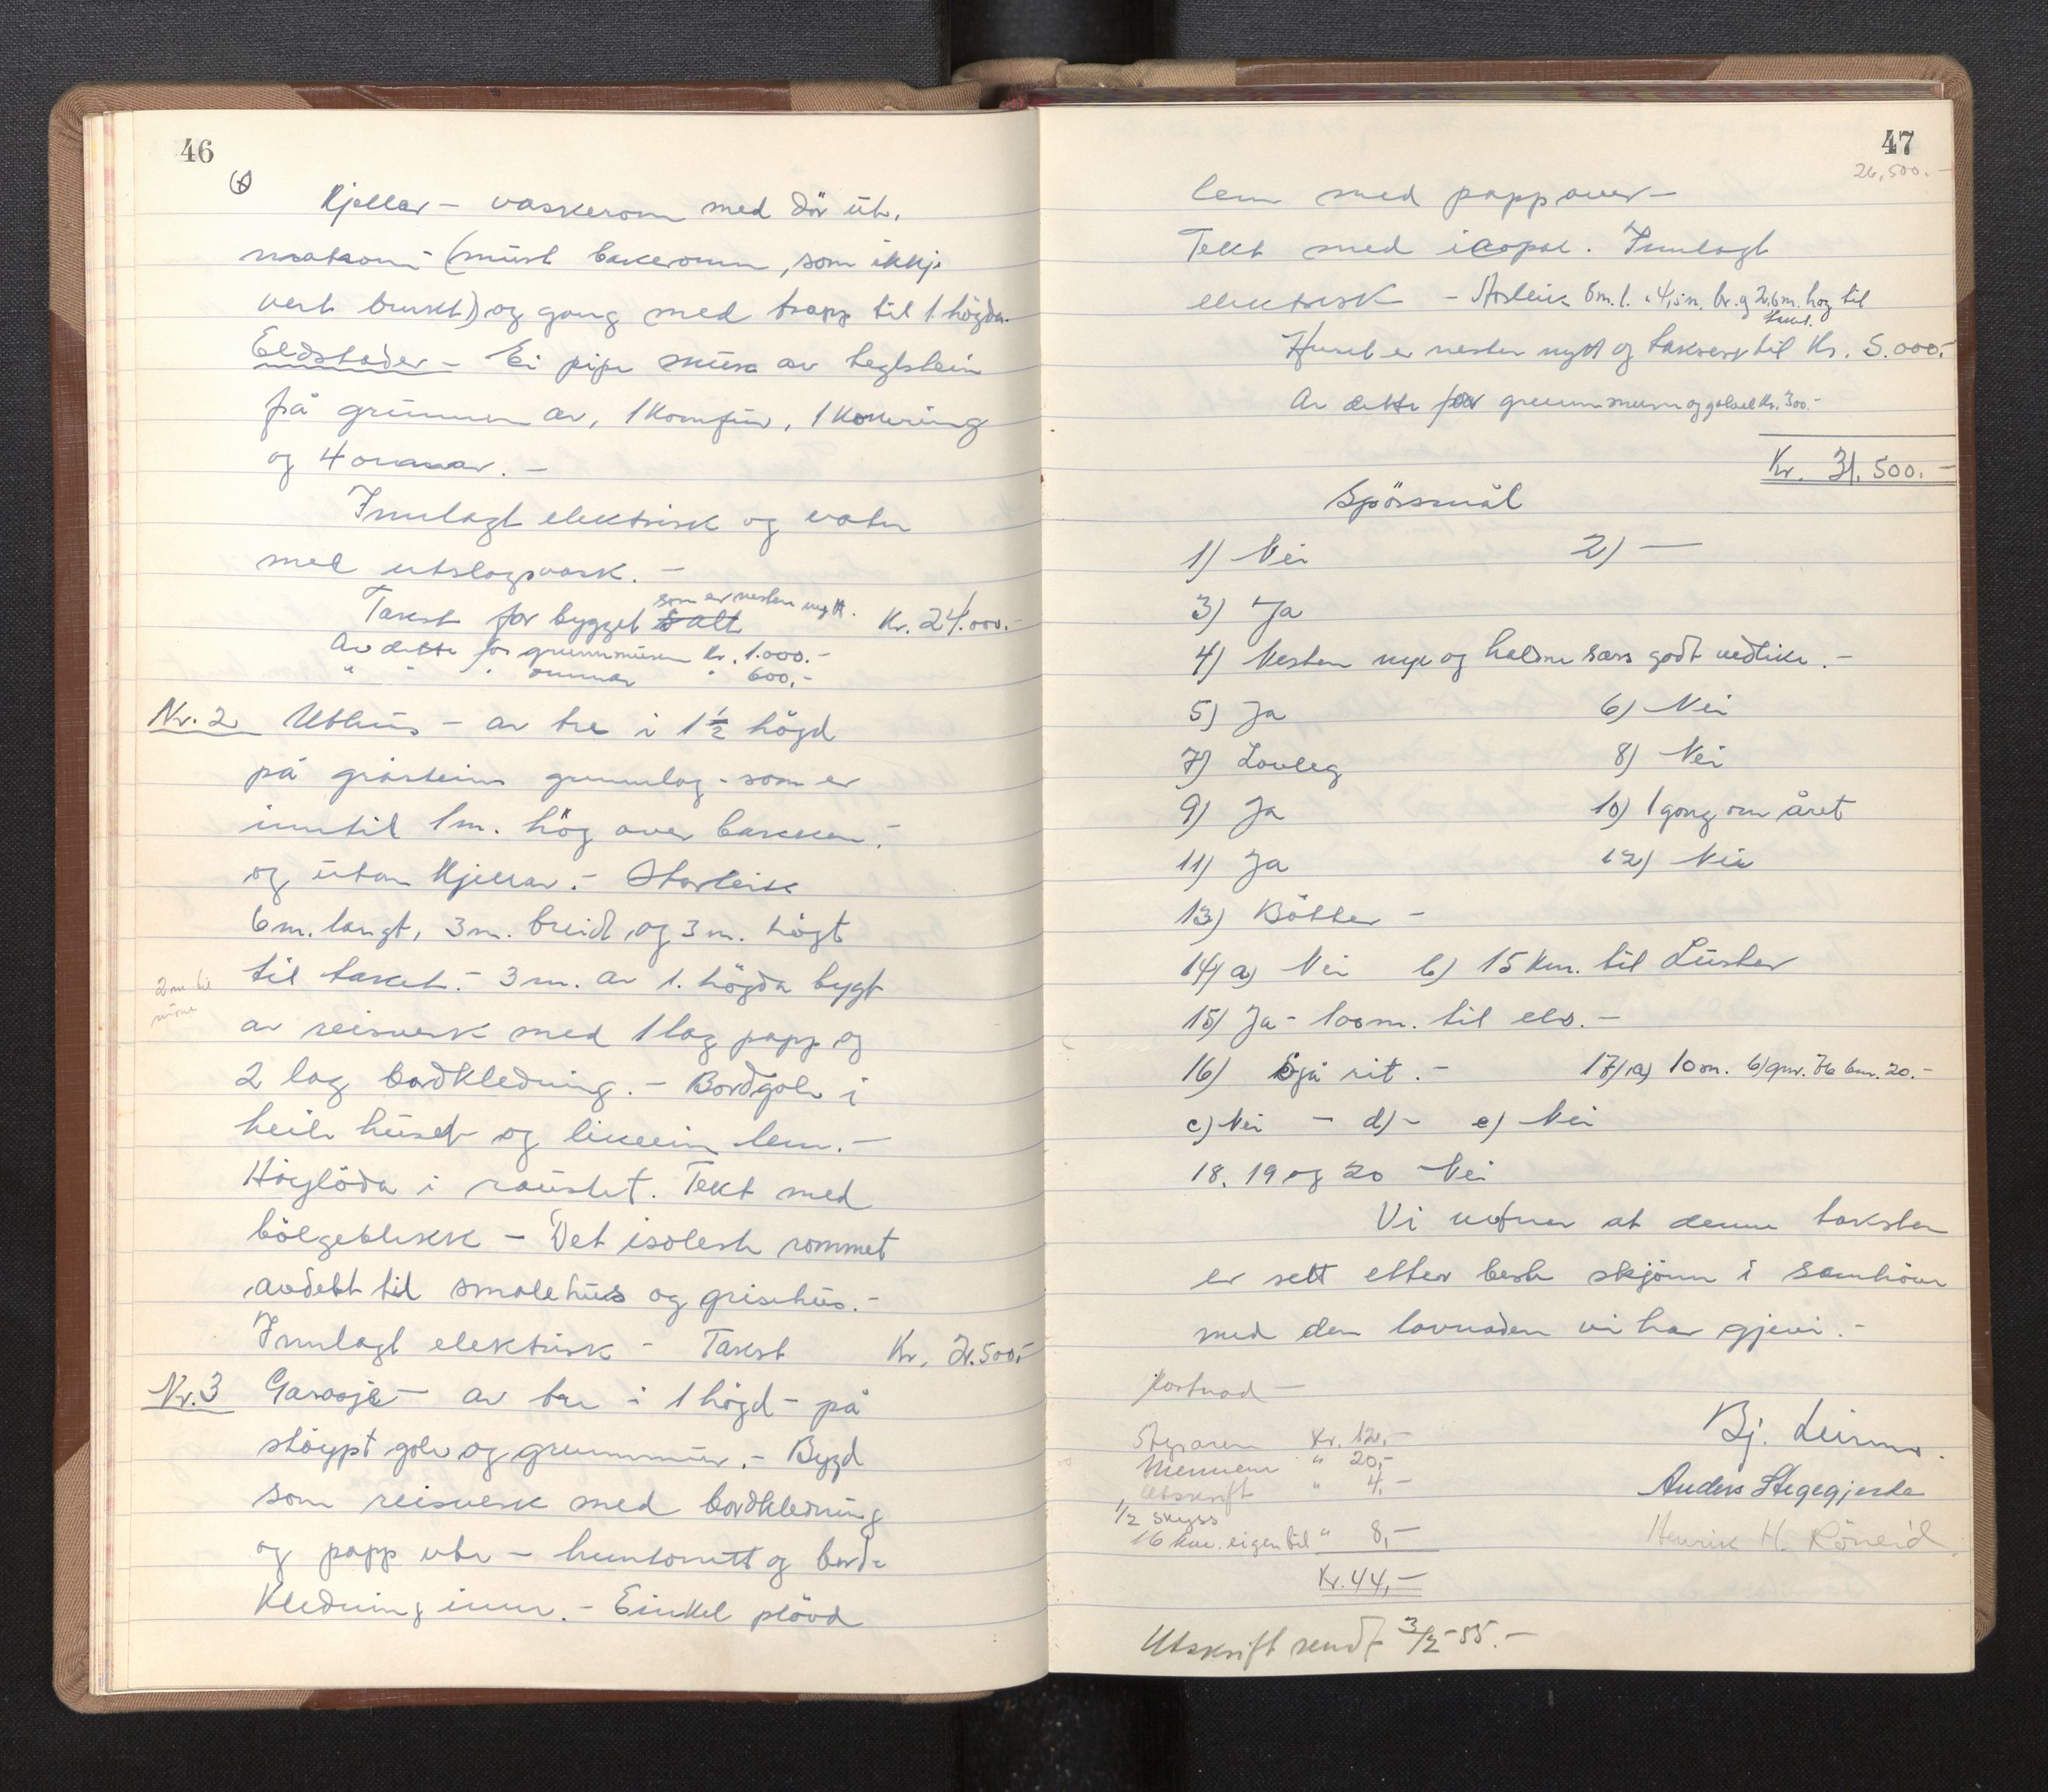 46
Kjellar – vaskerom med dör út,
matrom (múrt bakeromn, som ikkje
vert brukt) og gang med trapp til 1. högda.
Eldstader – Ei pipe múra av teglstein
på grunnen av, 1 komfúr, 1 kokering
og 4 omnar. –
Innlagt elektrisk og vatn
med utslagsvask. –
Takst for bygget som er nesten nytt. Kr. 24.000.-
Av dette for grunnmúren kr. 1.000.-
" " " omnar " 600,-
Nr. 2 Uthús – av tre i 1 ½ högd
på gråsteins grunnlag – som er
inntil 1 m. hög over bakken. –
og útan kjellar. – Storleik
6 m. langt, 3 m. breidt og 3 m. högt
til taket. – 3 m. av 1. högda bygt
2 m. til
av reisverk med 1 lag papp og
2 lag bordkledning. – Bordgolv i
heile húset og likeein lem. –
Höylöda i raústet. Tekt med
bölgeblikk – Det isolerte rommet
avdelt til smalehús og grisehús. –
Innlagt elektrisk – Takst Kr. 2.500,-
Nr. 3 Garasje – av tre i 1 högd – på
stöypt golv og grunnmúr. – Bygd
som reisverk med bordkledning
og papp ute – huntonitt og bord-
kledning inne. – Einkel plöyd
47
26,500.–
lem med papp over –
Tekt med icopal. Innlagt
elektrisk – Storleik 6 m. l. 4,5 m. br. og 2,6 m. hög til
taket.
Huset er nesten nytt og takserr til Kr. 5.000.-
Av dette for grunnmuren og golvet Kr. 300.-
Kr. 31.500.–
Spörsmål
1) Nei 2) —
3) Ja
4) Nesten nye og haldne særs godt vedlike. –
5) Ja 6) Nei
7) Lovleg 8) Nei
9) Ja 10) 1 gong om året
11) Ja 12) Nei
13) Bötter –
14) a) Nei b) 15 km. til Lúster
15) Ja – 100 m. til elv. –
16) Sjå rit. – 17) a) 10 m. b) gnr. 76 bnr. 20. –
c) Nei – d) – e) Nei
18, 19 og 20 Nei
Vi vitner at denne taksten
er sett etter beste skjönn i samhöve
med den lovnaden vi har gjevi. –
Kostnad –
Styraren Kr. 12,–
Mennene " 20,–
Utskrift " 4,–
1/2 skyss
16 km. eigen bil " 8,–
Kr. 44,–
Bj. Leirmo.
Anders Stegegjerde
Henrik H. Röneid.
Utskrift sendt 3/2-55. –